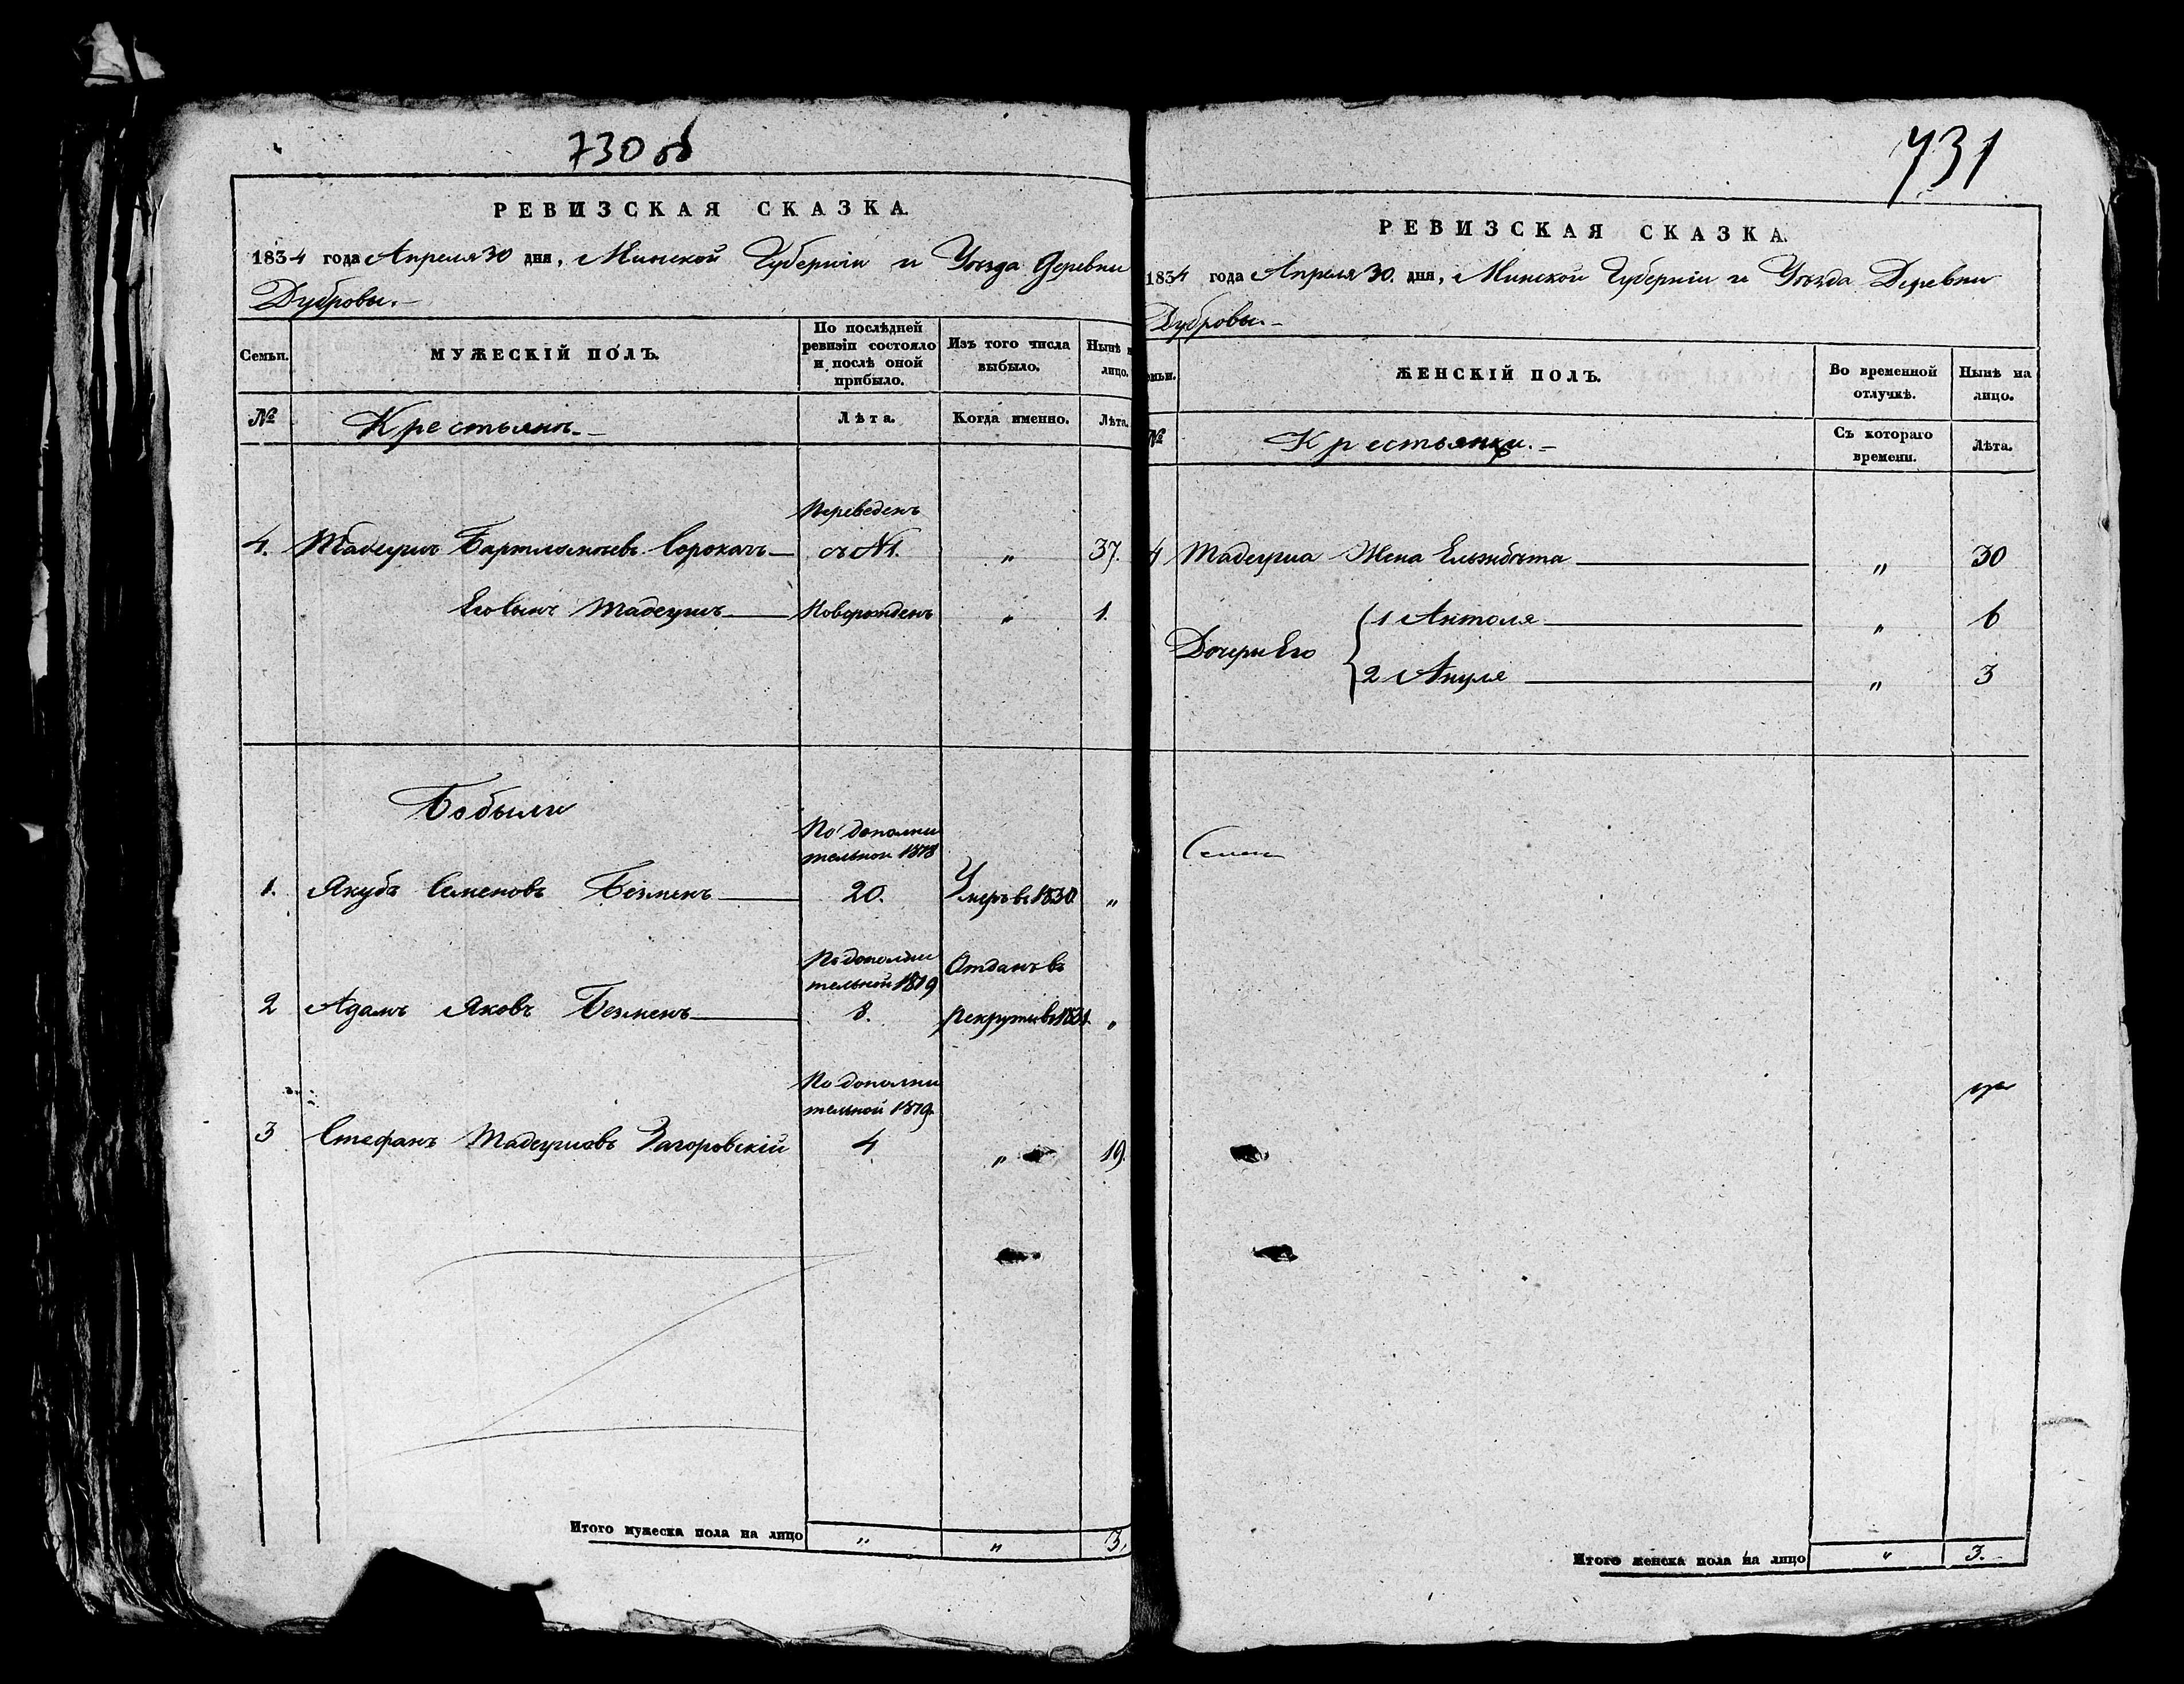 730 об
РЕВИЗСКАЯ СКАЗКА.
1834 года Апреля 30 дня, Минской Губерніи и Уѣзда Деревни
Дубровы.
Семьи.
МУЖЕСКІЙ ПОЛЪ.
По послѣдней
ревизіи состояло
и послѣ оной
прибыло.
Изъ того числа
выбыло.
Нынѣ н
лицо.
№
Крестьянъ.
Лѣта.
Когда именно.
Лѣта.
Переведенъ
4. Тадеушъ Бартломѣевъ Сорокачъ с № 1. „ 37.
Его Сынъ Тадеушъ Новорожденъ „ 1.
Бобыли
По дополни
тельной 1818
1. Якубъ Семеновъ Безменъ 20. Умеръ в 1830. „
По дополни
тельной 1819
Отданъ въ
2 Адамъ Яковъ Безменъ 8. рекруты в 1831. „
По дополни
тельной 1819.
3 Стефанъ Тадеушовъ Загоровскій 4 „ 19.
Итого мужеска пола на лицо „ „ 3.
731
РЕВИЗСКАЯ СКАЗКА.
1834 года Апреля 30. дня, Минской Губерніи и Уѣзда Деревни
Дубровы.
емьи.
ЖЕНСКІЙ ПОЛЪ.
Во временной
отлучкѣ.
Нынѣ на
лицо.
№
Крестьянки.
Съ котораго
времени.
Лѣта.
4 Тадеуша Жена Ельжбѣта „ 30
Дочери Его
1 Антоля „ 6
2 Ануля „ 3
Итого женска пола на лицо „ 3.